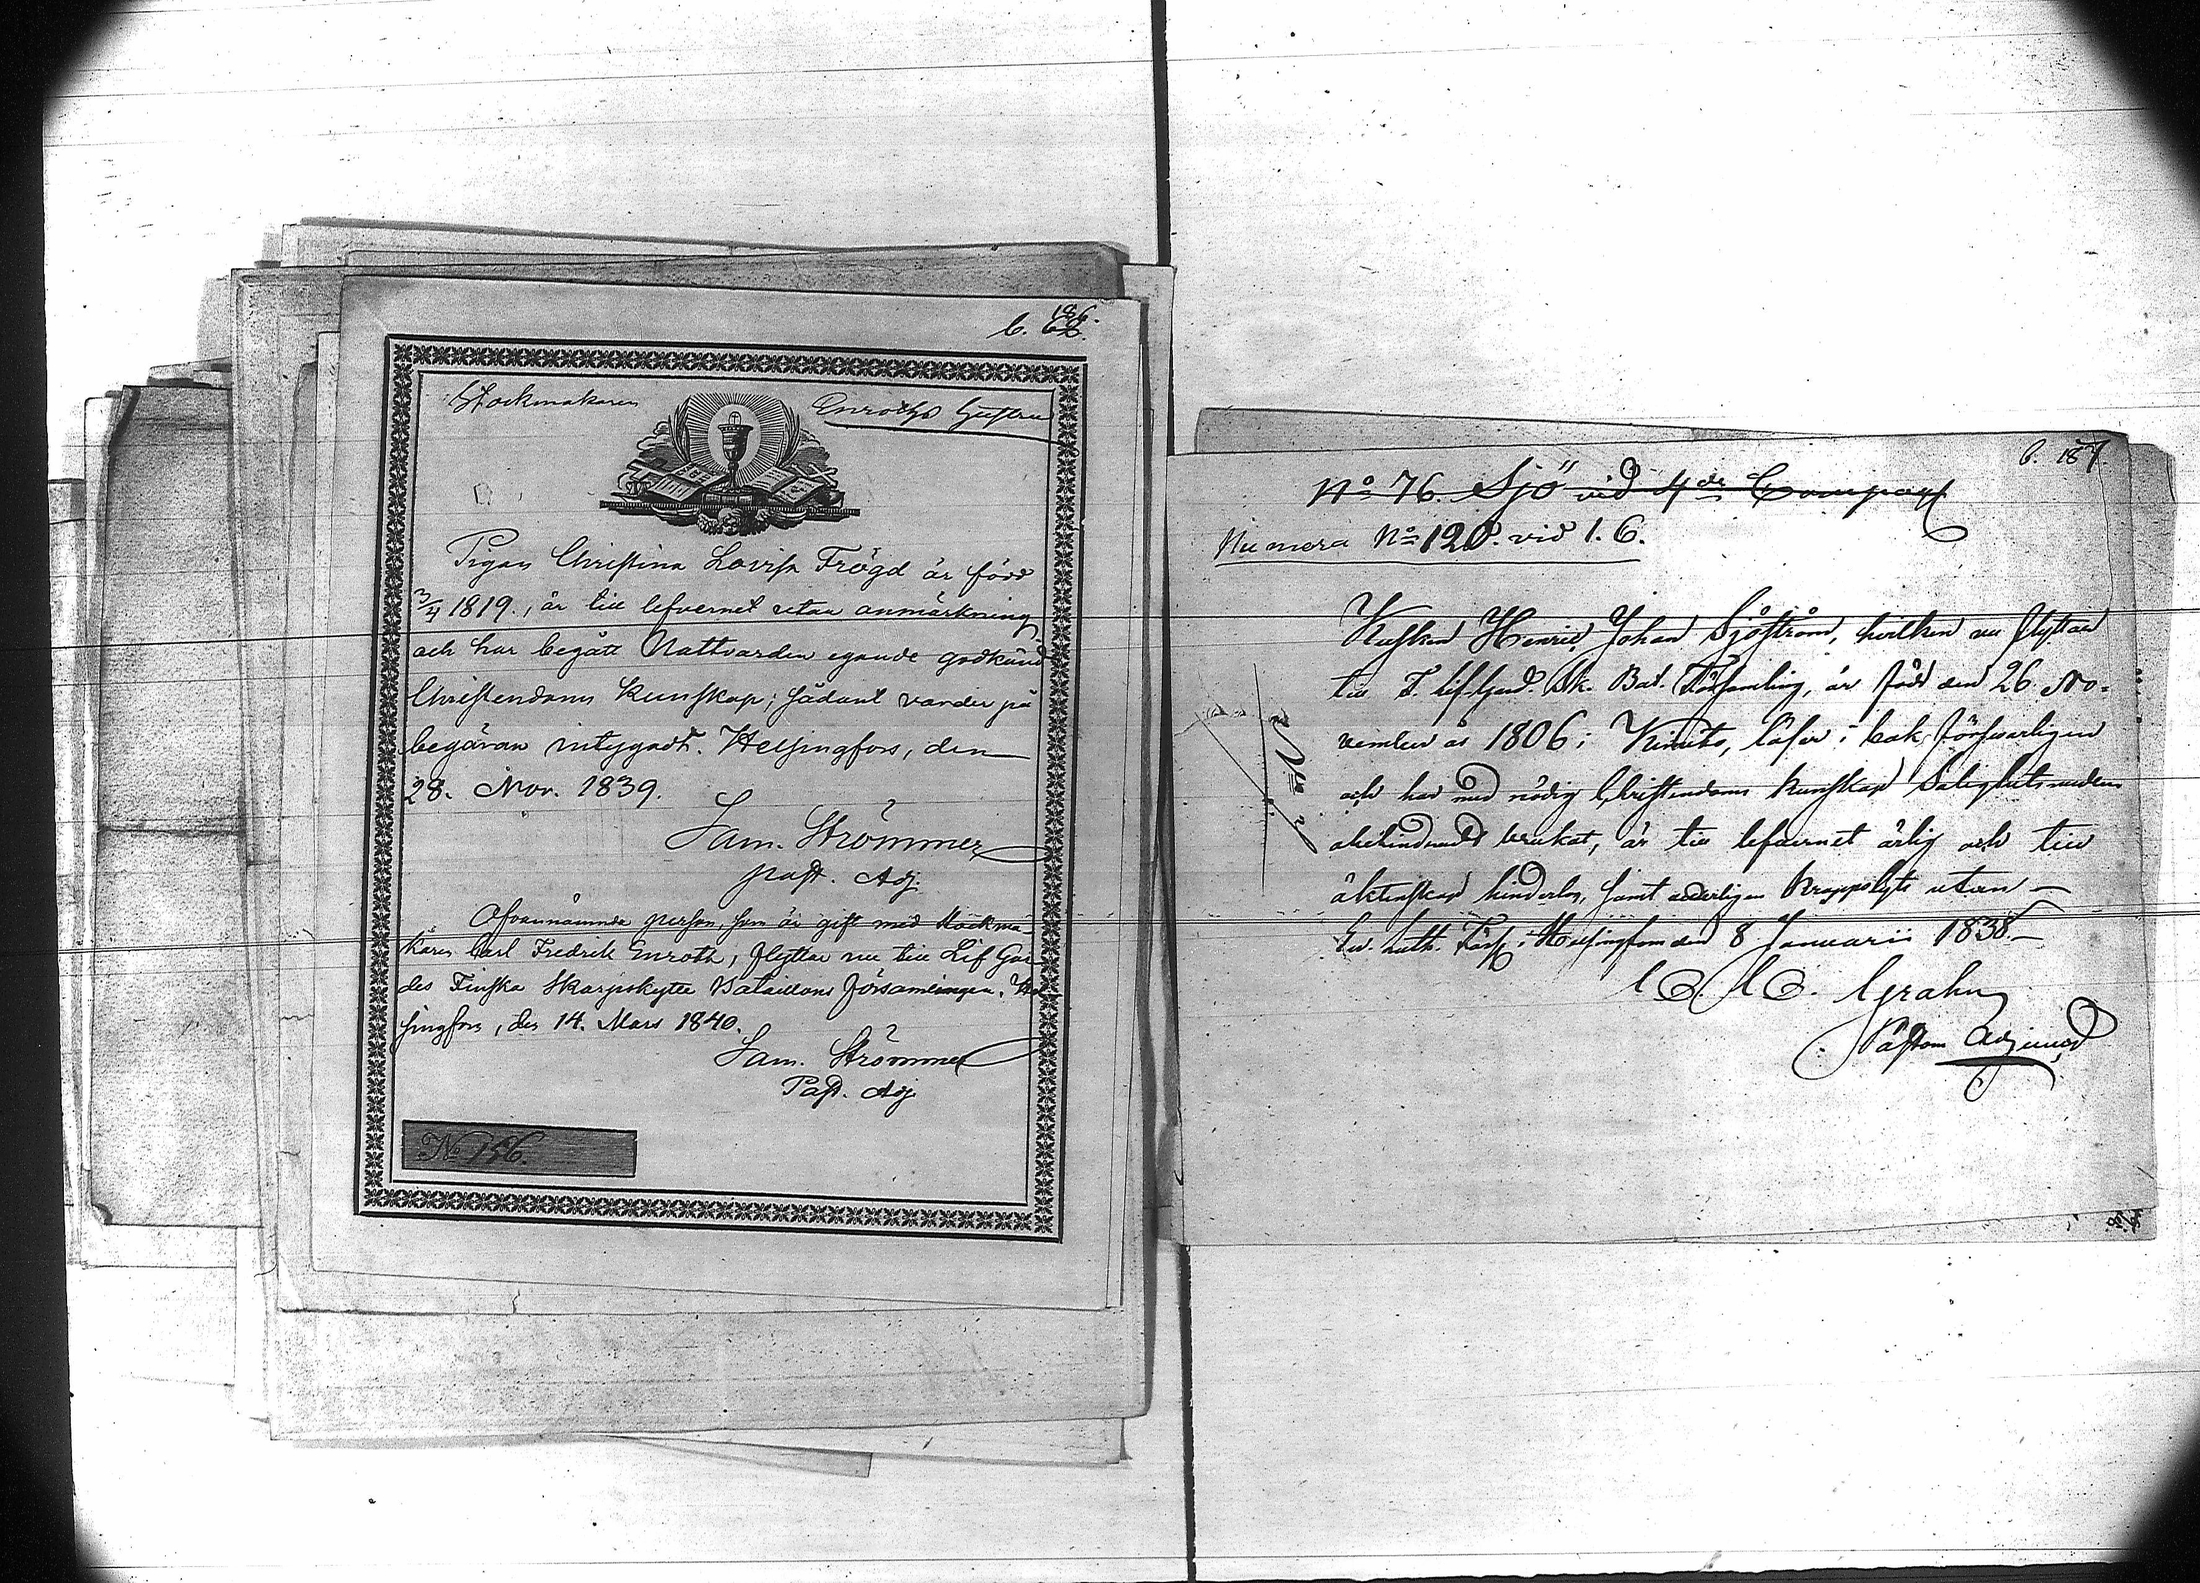 b. 186.
Stockmakaren Enroths hustru
Pigan Christina Lovisa Frögd är född
3/4 1819., är till lefvernet utan anmärkning
och har begått Nattvarden egande godkänd
Christendoms kunskap; sådant varder på
begäran intygadt. Helsingfors, den
28. Nov. 1839.
Sam. Strömmer
past. Adj.
Ofvannämnde person, som är gift med Stockma-
karen Carl Fredrik Enroth, flyttar nu till Lif Gar-
des Finska Skarpskytte Bataillons församlingen. Hel-
singfors, den 14. Mars 1840.
Sam. Strömmer
Past. Adj
No 156.
b. 187.
No 76. Sjö" vid 4de Compagt
Numera No 120. vid 1. C.
Kusken Henric Johan Sjöström, hvilken nu flyttar
till F. Lif Gard. Sk. Bat. Församling, är född den 26 No-
vember år 1806 i Kimito, läser i bok försvarligen
och har med nödig Christendoms kunskap Salighetsmedlen
obehindradt brukat, är till lefvernet ärlig och till
äktenskap hinderlös, samt utan
Ev. Luth. Förs. i Helsingfors den 8 Januarii 1838.
Grahn
Pastors Adjunct